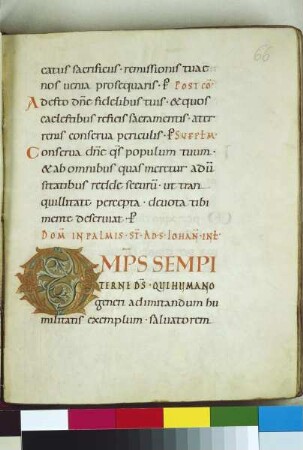 66
catus sacrificus · remissionis tuae
nos uenia prosequaris · P Post cō ·
Adesto dn̄e fidelibus tuis · & quos
caelestibus reficis sacramentis · a ter
renis conserua periculis · P
Conserua dn̄e qs populum tuum ·
& ab omnibus quas meretur adu
sitatibus redde securū · ut tran
quillitate percepta · deuota tibi
mente deseruiat · P
DOM IN PALMIS · ST · AD S · IOHAN · IN L
OMPS SEMPI
TERNE DS · QUI HUMANO
generi ad imitandum hu
militatis exemplum · saluatorem